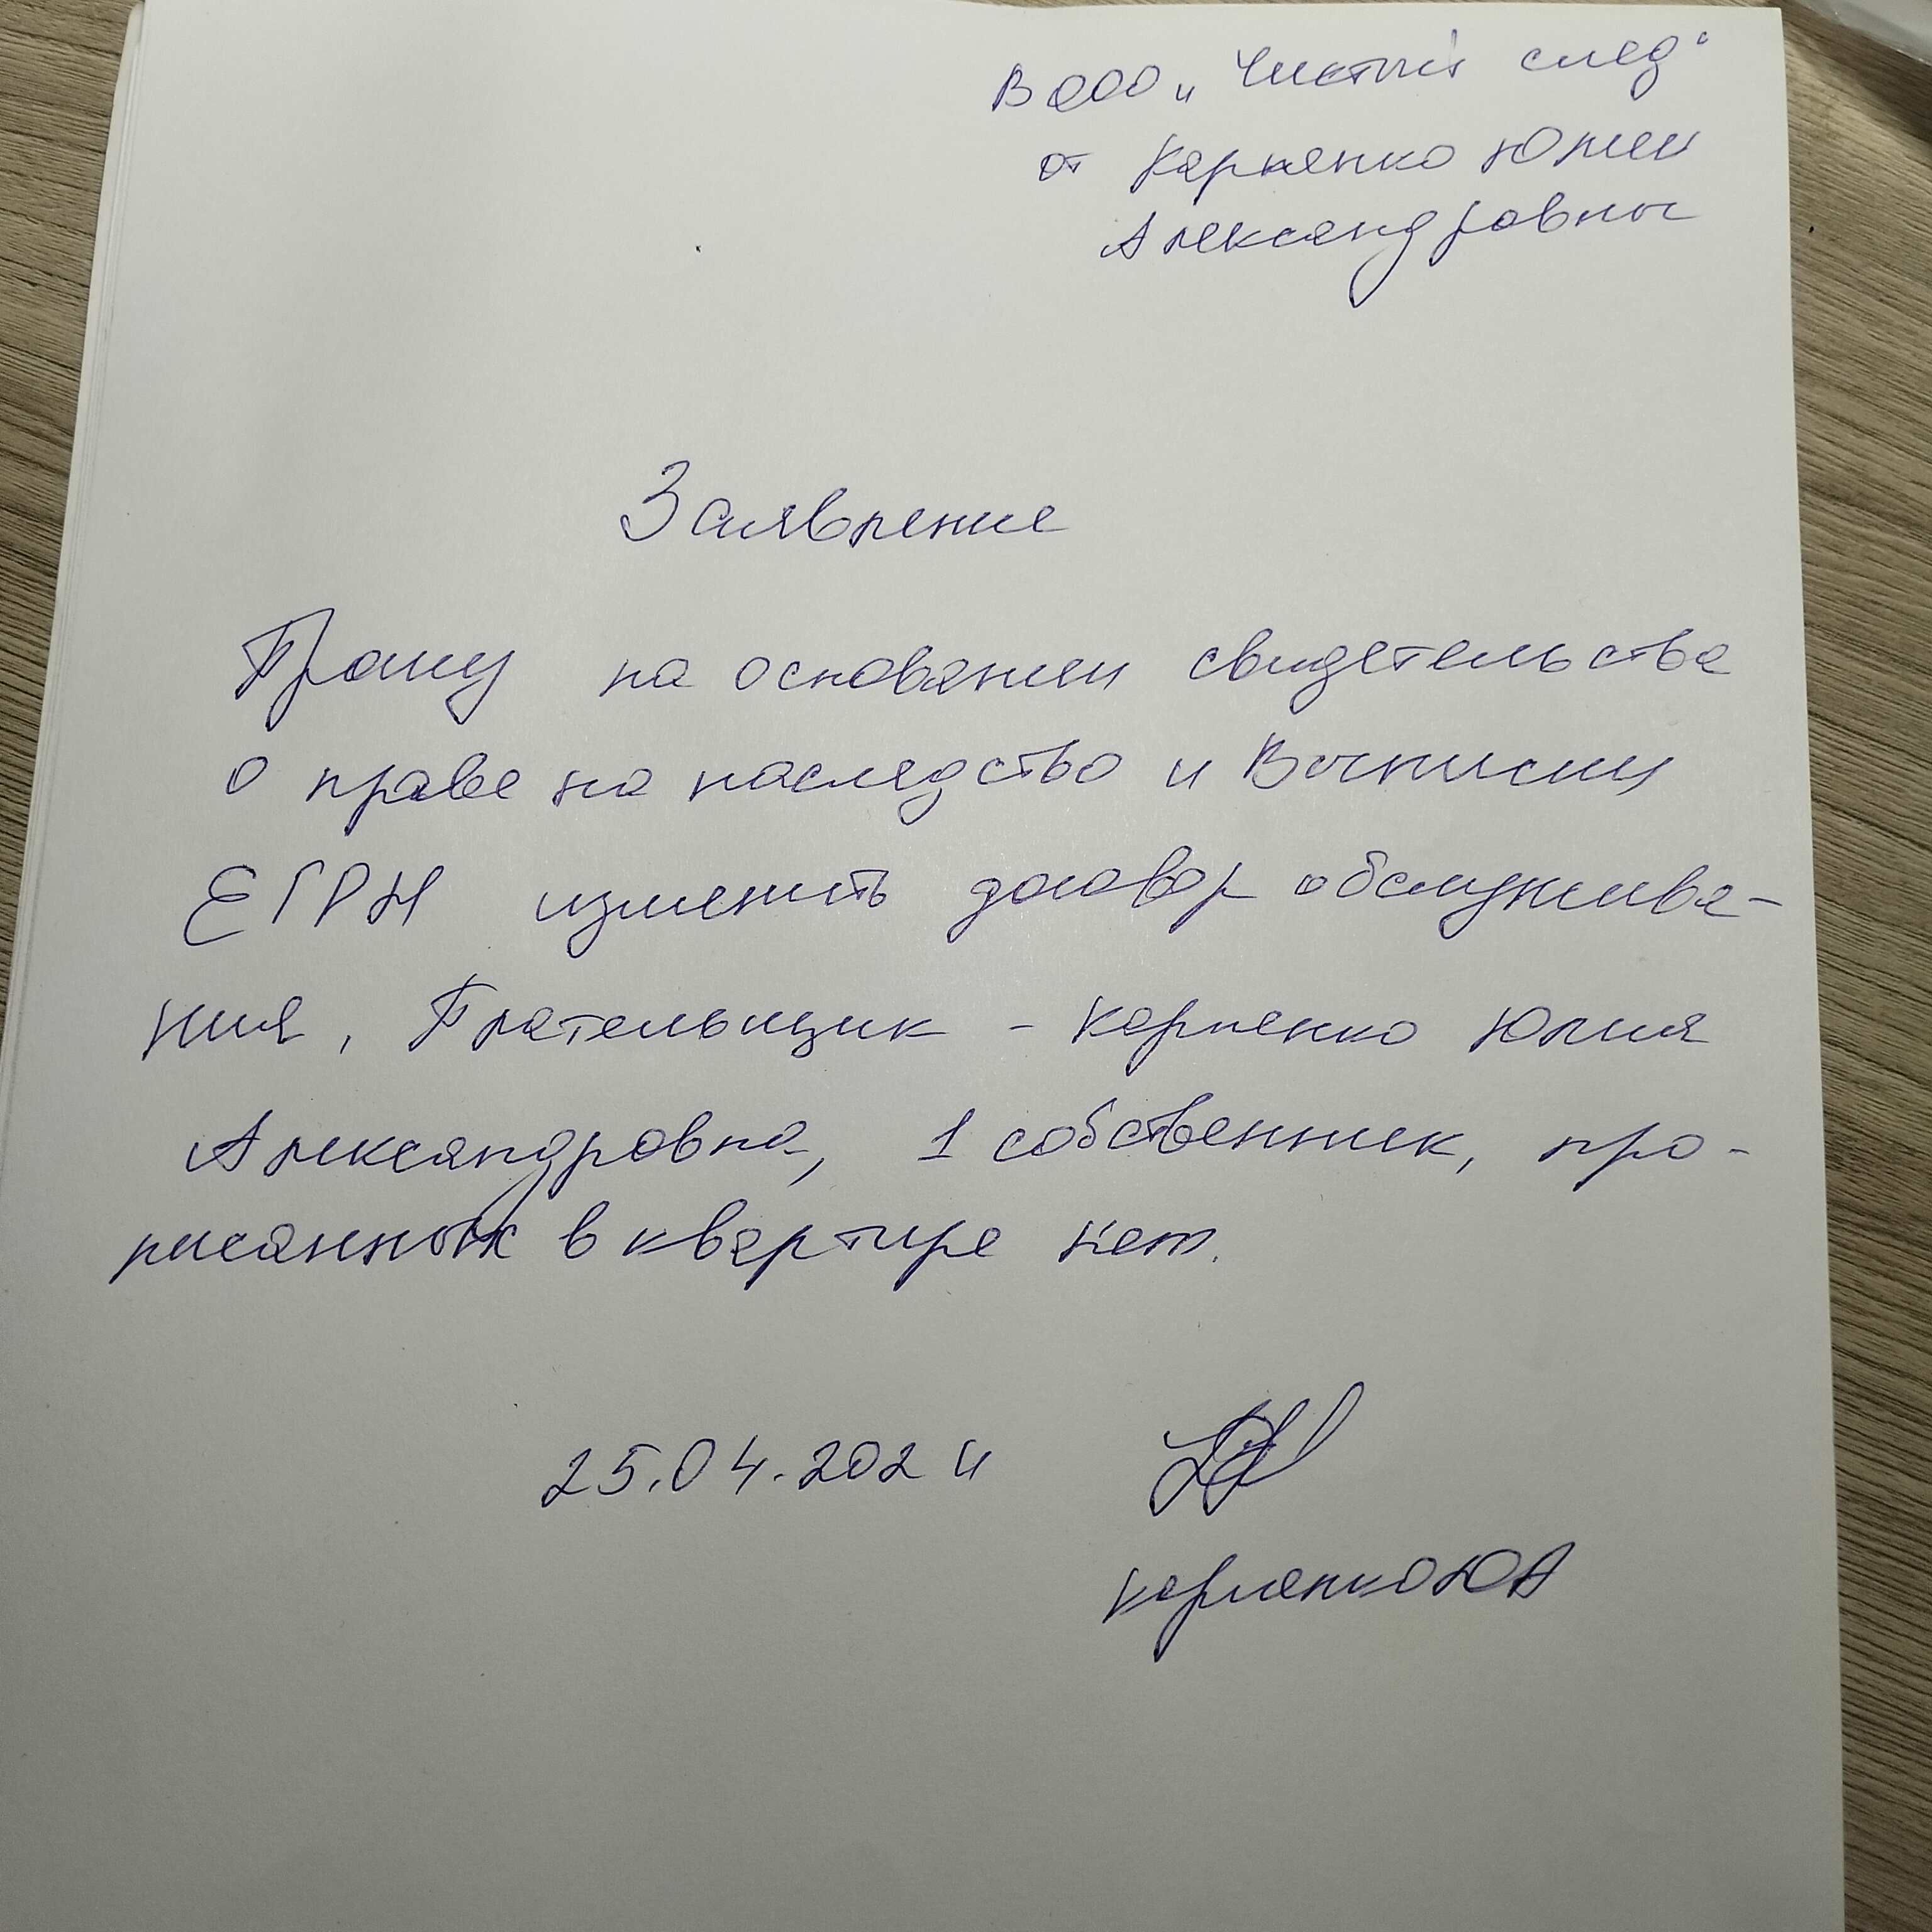 В ООО „Чистый след“
от Карпенко Юлии
Александровны
Заявление
Прошу на основании свидетельства
о праве на наследство и Выписки
ЕГРН изменить договор обслужива-
ния, Плательщик - Карпенко Юлия
Александровна, 1 собственник, про-
писанных в квартире нет.
25.04.2024
Карпенко ЮА